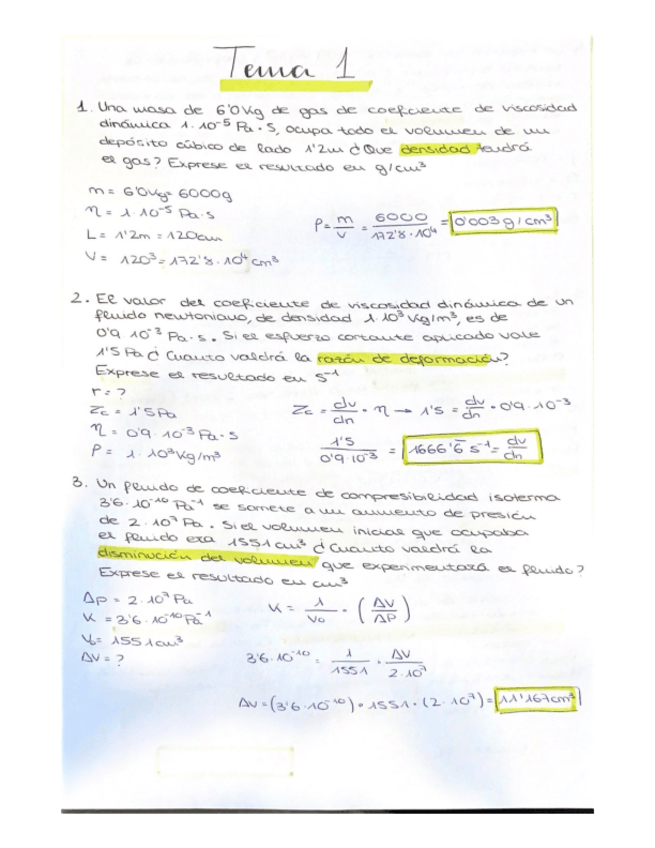 Tema 1
1. Una masa de 6'0 Kg de gas de coeficiente de viscosidad
dinámica 1·10⁻⁵ Pa·s, ocupa todo el volumen de un
depósito cúbico de lado 1'2m ¿Que densidad tendrá
el gas? Exprese el resultado en g/cm³
m = 6'0Kg = 6000g
η = 1·10⁻⁵ Pa·s
L = 1'2m = 120cm
V = 120³ = 172'8·10⁴ cm³
ρ = m/V = 6000/172'8·10⁴ = 0'003 g/cm³
2. El valor del coeficiente de viscosidad dinámica de un
fluido newtoniano, de densidad 1·10³ Kg/m³, es de
0'9·10⁻³ Pa·s. Si el esfuerzo cortante aplicado vale
1'5 Pa ¿Cuanto valdrá la razón de deformación?
Exprese el resultado en s⁻¹
r = ?
Zc = 1'5Pa
η = 0'9·10⁻³ Pa·s
ρ = 1·10³ Kg/m³
Zc = dv/dn · η → 1'5 = dv/dn · 0'9·10⁻³
1'5/0'9·10⁻³ = 1666'6̄ s⁻¹ = dv/dn
3. Un fluido de coeficiente de compresibilidad isoterma
3'6·10⁻¹⁰ Pa⁻¹ se somete a un aumento de presión
de 2·10⁷ Pa. Si el volumen inicial que ocupaba
el fluido era 1551 cm³ ¿Cuanto valdrá la
disminución del volumen que experimentará el fluido?
Exprese el resultado en cm³
Δp = 2·10⁷ Pa
K = 3'6·10⁻¹⁰ Pa⁻¹
V₀ = 1551cm³
ΔV = ?
K = 1/V₀ · (ΔV/ΔP)
3'6·10⁻¹⁰ = 1/1551 · ΔV/2·10⁷
ΔV = (3'6·10⁻¹⁰)·1551·(2·10⁷) = 11'167cm³